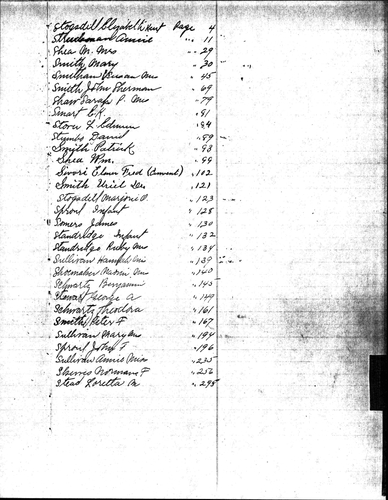 Stogadill Elizabeth Hunt Page 4
Annie " 11
Shea M. Mrs - 29
Smith, Mary - 30
Susan Mrs " 45
Smith John Sherman " 69
Shaw Sarah P. Mrs - 79
Smart E.R. . 81
Stover L Edwin . 84
Stumbo David . 89
Smith Patrick " 93
Shea Wm. . 99
Sivori Elmer Fred 102
Smith Uriel . 121
Stogadill Marjorie " 123
Sprout Infant " 128
Somers James " 130
Standridge Infant " 132
Standridge Ruby Mrs " 134
Sullivan Hannah Mrs " 139
Shoemaker Mrs " 140
Schwartz Benjamin " 145
Stewart George A " 149
Schwartz Theodora " 161
Smith Peter F " 167
Sullivan Mary Mrs " 194
Sprout John F " 196
Sullivan Annie Miss " 235
Norman F " 256
Stead Loretta M " 295